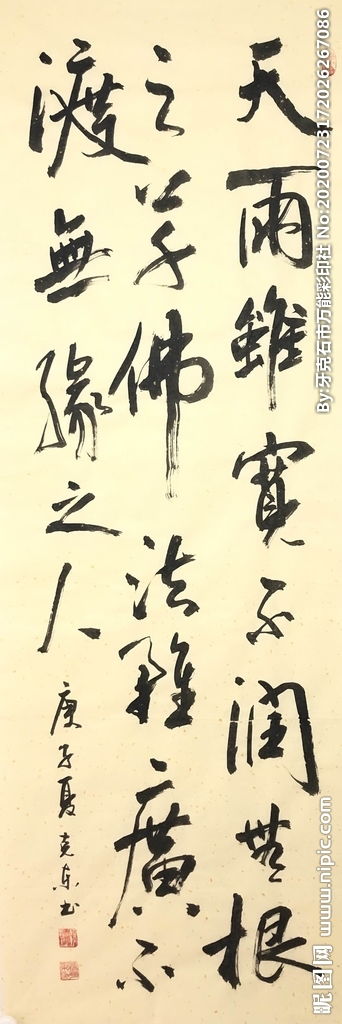 天雨雖寬不潤無根
之草佛法雖廣不
渡無緣之人
庚子夏克東书
By:牙克石市万能彩印社 No:20200723172026267086
昵图网 www.nipic.com